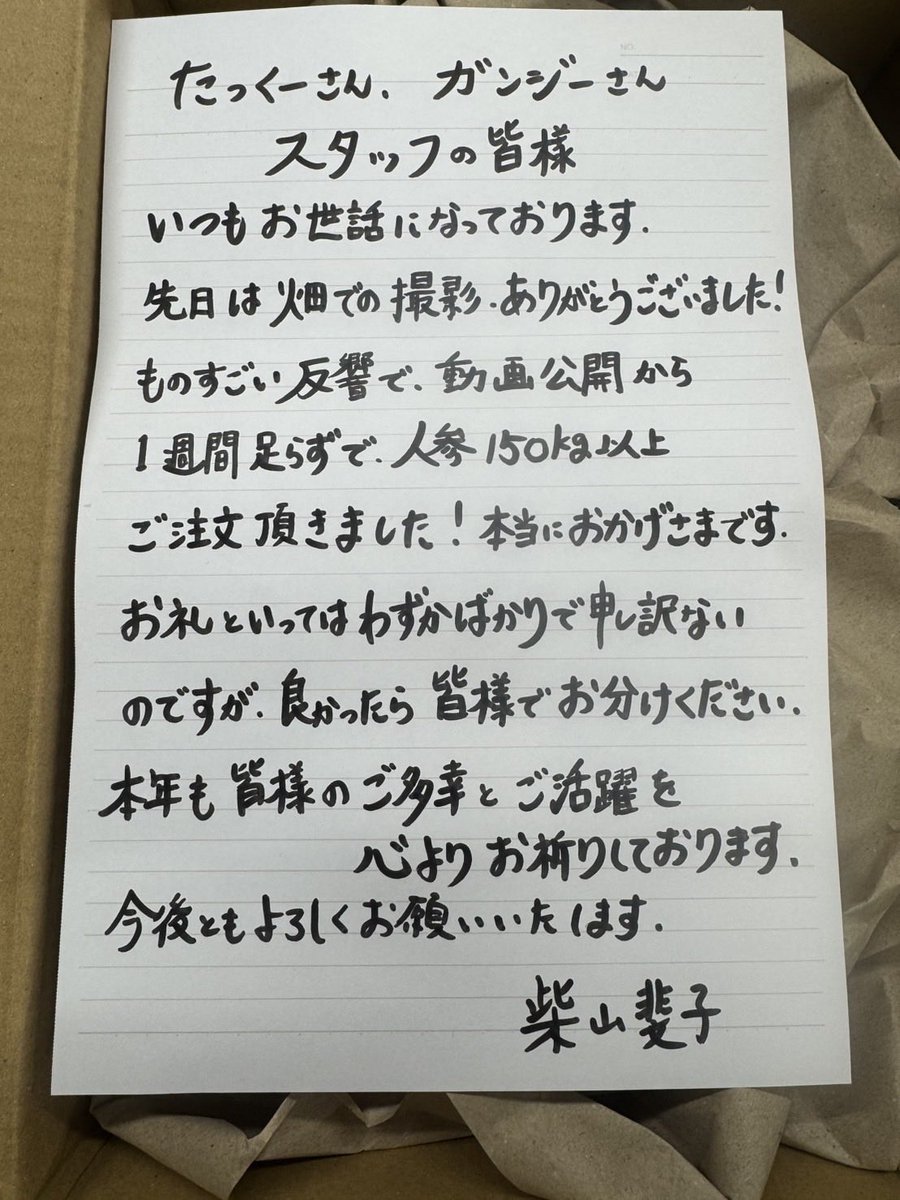 NO.
たっくーさん、ガンジーさん
スタッフの皆様
いつもお世話になっております.
先日は畑での撮影、ありがとうございました!
ものすごい反響で、動画公開から
1週間足らずで、人参150kg以上
ご注文頂きました!本当におかげさまです.
お礼といってはわずかばかりで申し訳ない
のですが、良かったら皆様でお分けください.
本年も皆様のご多幸とご活躍を
心よりお祈りしております.
今後ともよろしくお願いいたします.
柴山斐子